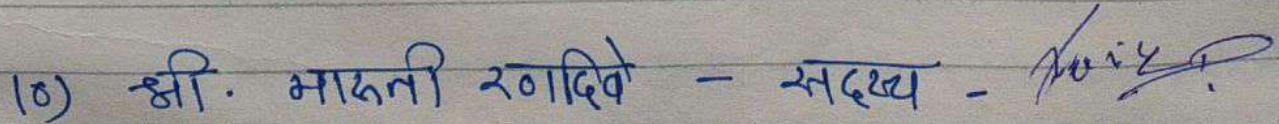 10) श्री. मारुती रणदिवे - सदस्य -